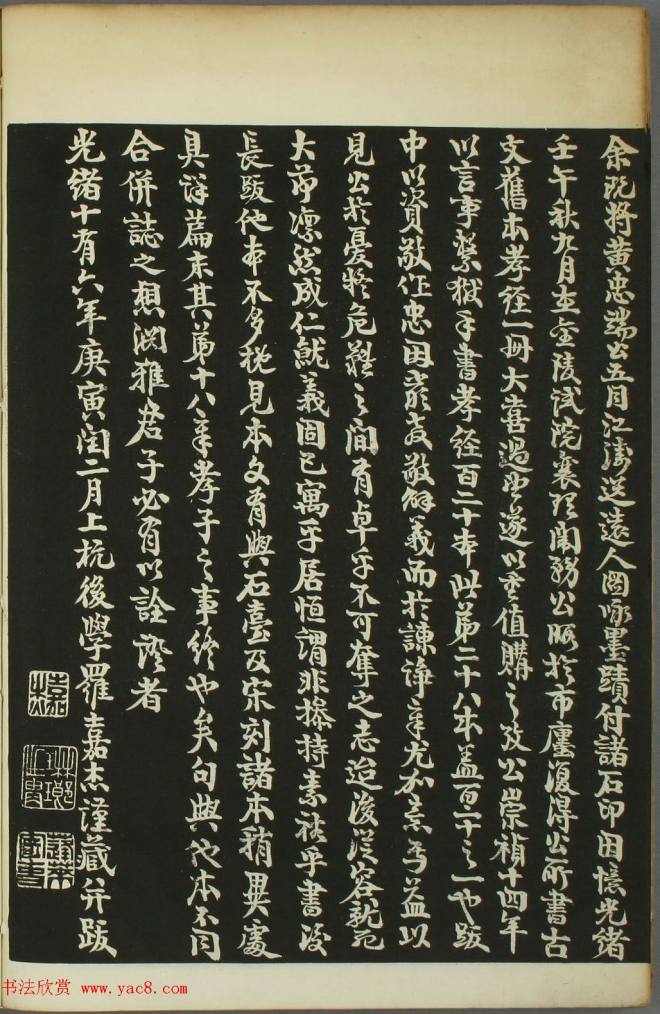 余既將黃忠端公五月江濤送遠人圖咏墨蹟付諸石印因憶光緒
壬午秋九月在金陵試院襄理闈務公暇於市廛復得公所書古
文舊本孝經一冊大喜過望遂以重值購之攷公崇禎十四年
以言事繫獄手書孝經百二十本此第二十八本蓋百二十之一也跋
中以資敬作忠因嚴教敬解義而於諫諍章尤加意焉益以
見公於憂讒危難之間有卓乎不可奪之志迨後從容就死
大節凜然成仁就義固已寓乎居恒謂非操持素裕乎書後
長跋他本不多概見本文有與石臺及宋刻諸本稍異處
具詳篇末其第十八章孝子之事終也矣句與他本不同
合併誌之想淵雅君子必有以詮證者
光緒十有六年庚寅閏二月上杭後學羅嘉杰謹藏并跋
嘉杰
书法欣赏 www.yac8.com